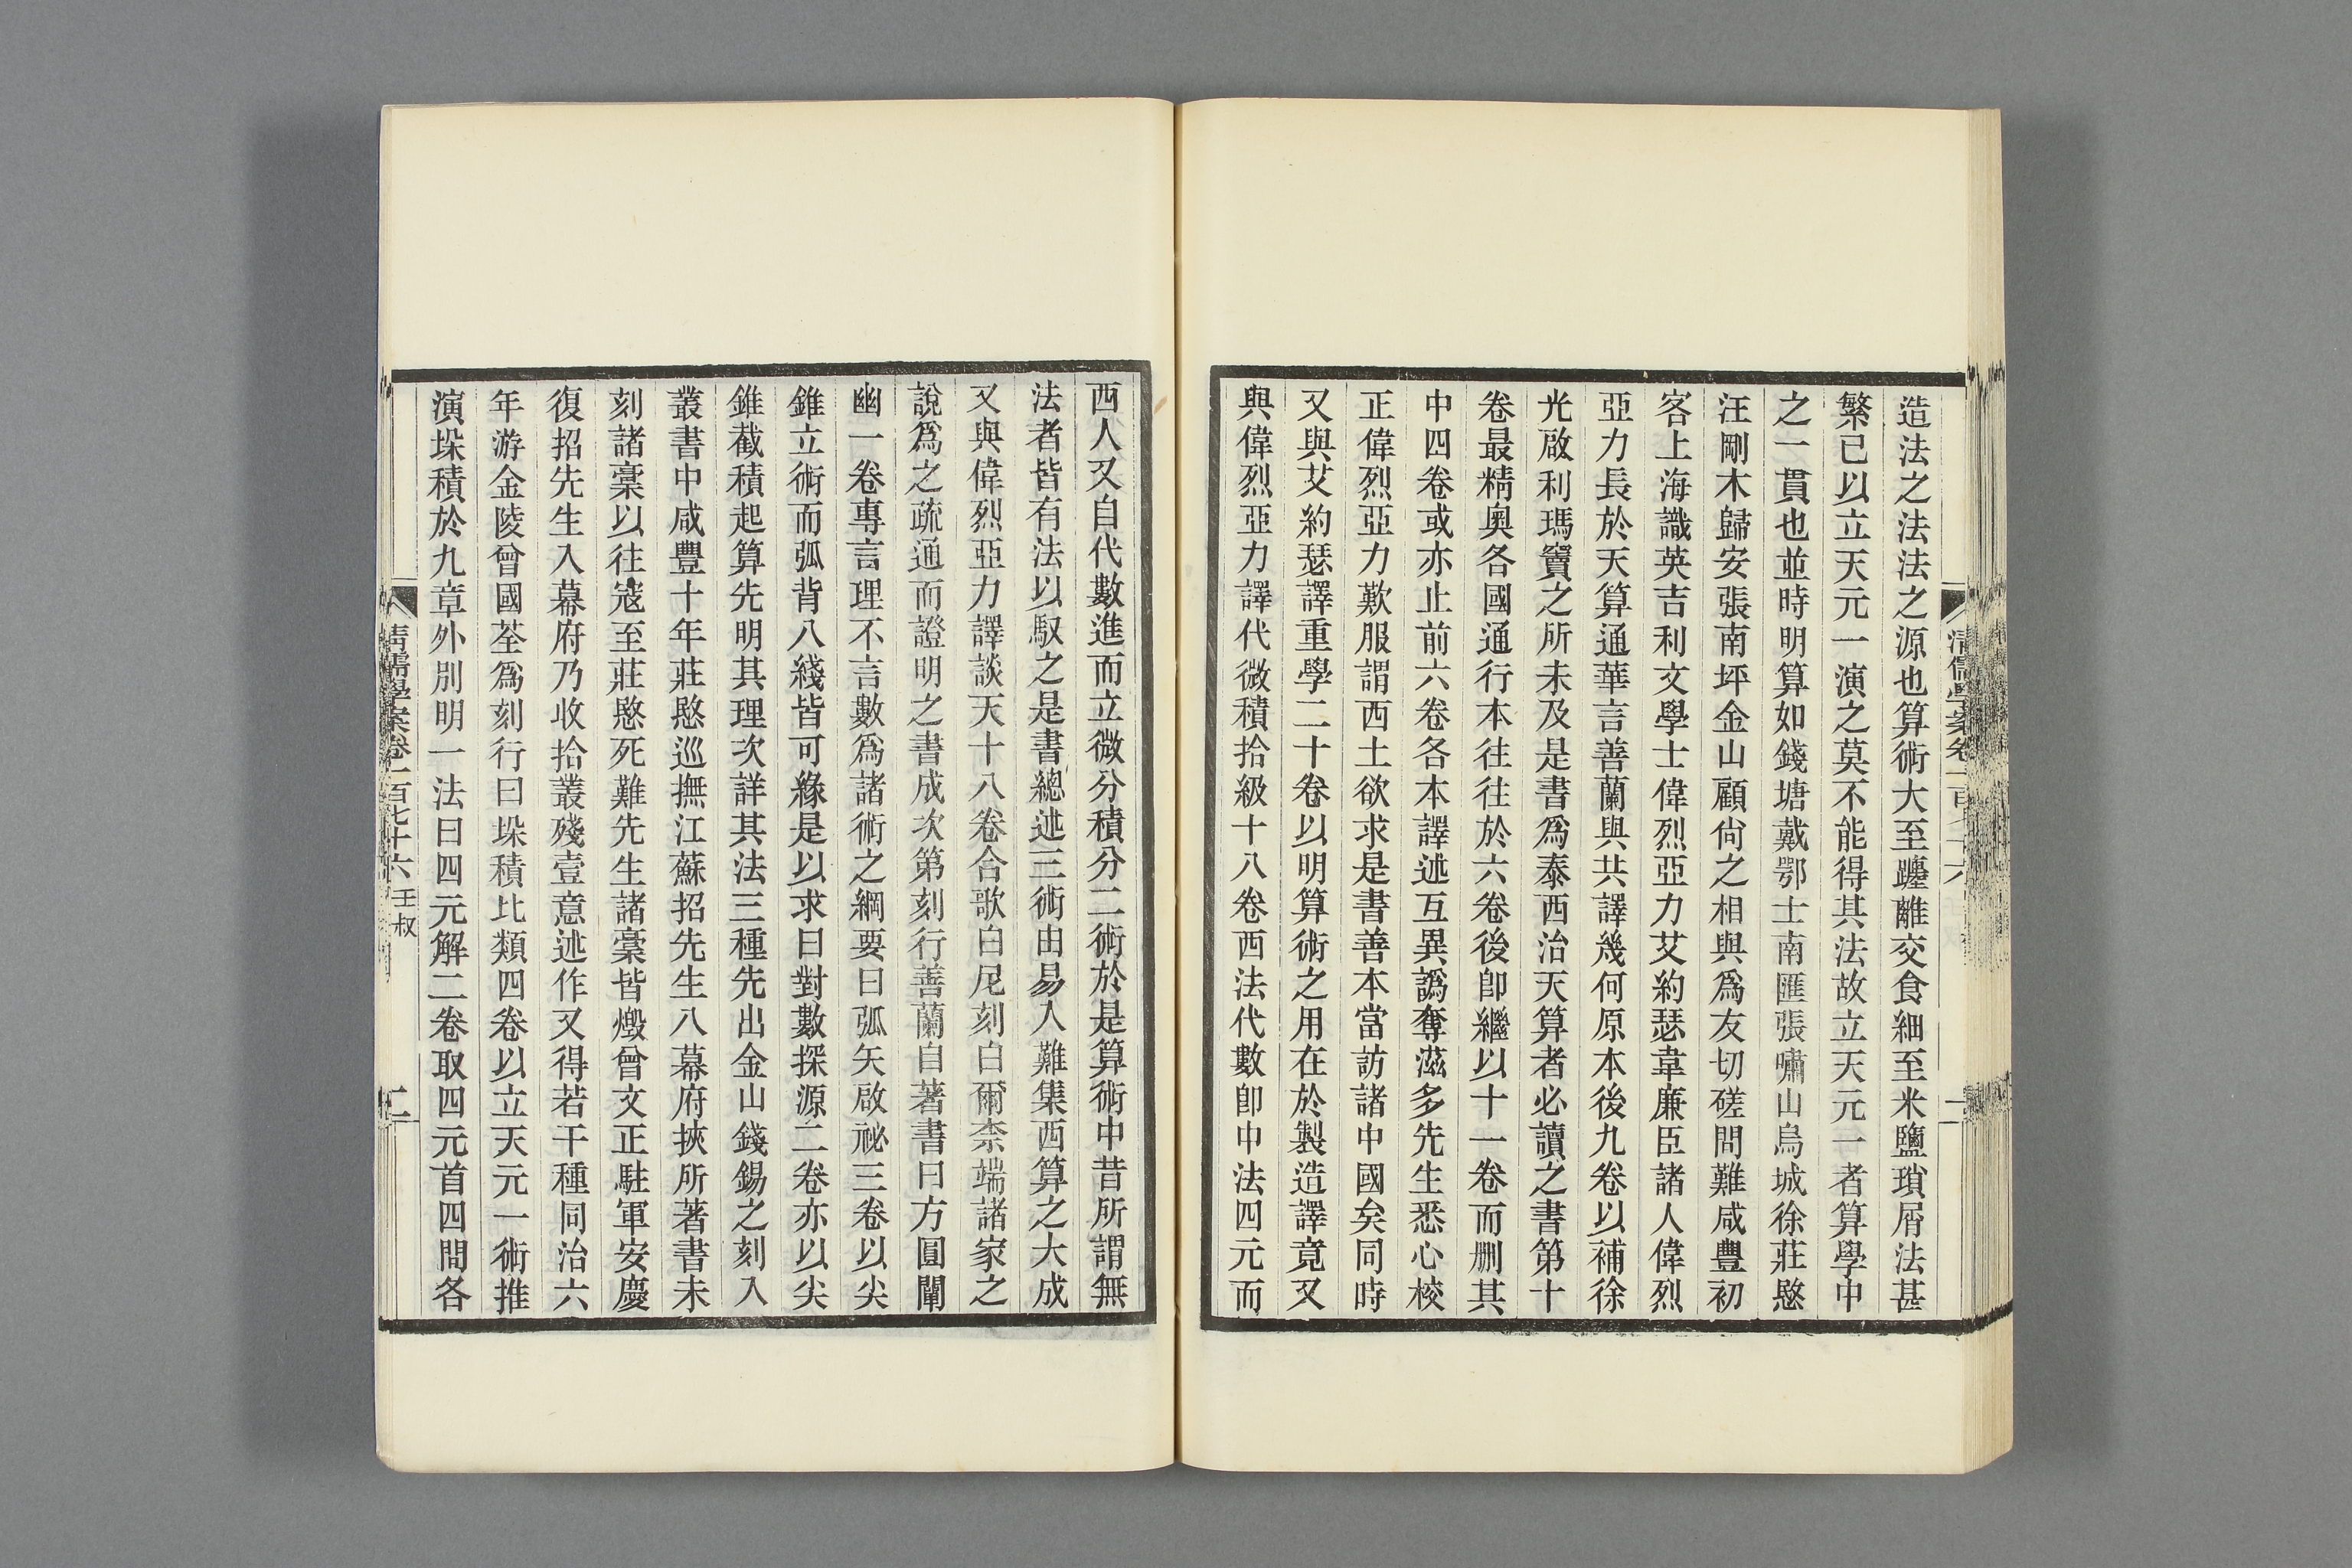 造法之法法之源也算術大至躔離交食細至米鹽瑣屑法甚
繁已以立天元一演之莫不能得其法故立天元一者算學中
之一貫也並時明算如錢塘戴鄂士南匯張嘯山烏城徐莊愍
汪剛木歸安張南坪金山顧尙之相與爲友切磋問難咸豐初
客上海識英吉利文學士偉烈亞力艾約瑟韋廉臣諸人偉烈
亞力長於天算通華言善蘭與共譯幾何原本後九卷以補徐
光啟利瑪竇之所未及是書爲泰西治天算者必讀之書第十
卷最精奧各國通行本往往於六卷後卽繼以十一卷而刪其
中四卷或亦止前六卷各本譯述互異譌奪滋多先生悉心校
正偉烈亞力歎服謂西土欲求是書善本當訪諸中國矣同時
又與艾約瑟譯重學二十卷以明算術之用在於製造譯竟又
與偉烈亞力譯代微積拾級十八卷西法代數卽中法四元而
西人又自代數進而立微分積分二術於是算術中昔所謂無
法者皆有法以馭之是書總述三術由易入難集西算之大成
又與偉烈亞力譯談天十八卷合歌白尼刻白爾柰端諸家之
說爲之疏通而證明之書成次第刻行善蘭自著書曰方圓闡
幽一卷專言理不言數爲諸術之綱要曰弧矢啟祕三卷以尖
錐立術而弧背八綫皆可緣是以求曰對數探源二卷亦以尖
錐截積起算先明其理次詳其法三種先出金山錢錫之刻入
叢書中咸豐十年莊愍巡撫江蘇招先生入幕府挾所著書未
刻諸稾以往寇至莊愍死難先生諸稾皆燬曾文正駐軍安慶
復招先生入幕府乃收拾叢殘壹意述作又得若干種同治六
年游金陵曾國荃爲刻行曰垛積比類四卷以立天元一術推
演垛積於九章外別明一法曰四元解二卷取四元首四問各
清儒學案卷一百七十六 壬叔
二